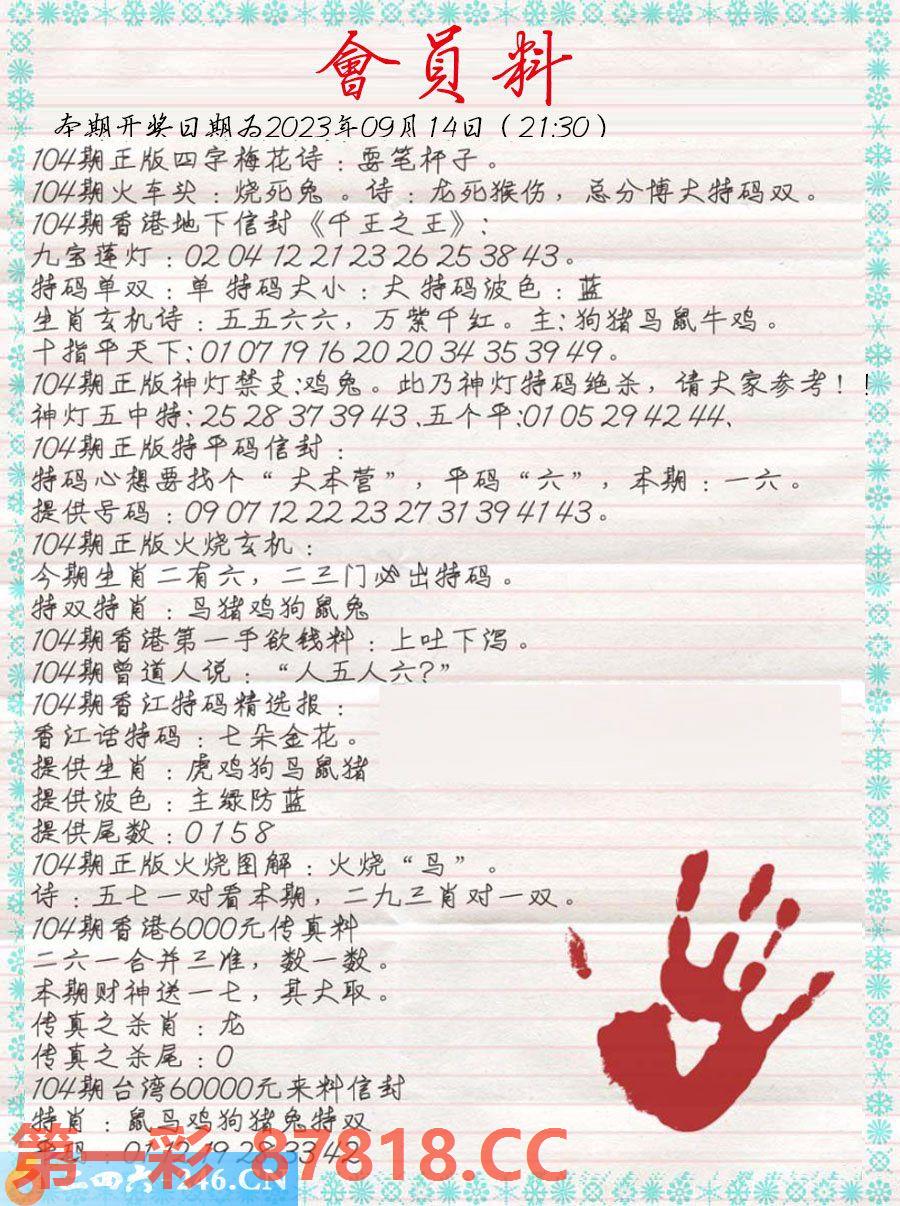 會員料
本期开奖日期为2023年09月14日（21:30）
104期正版四字梅花诗：耍笔杆子。
104期火车头：烧死兔。诗：龙死猴伤，总分博大特码双。
104期香港地下信封《千王之王》：
九宝莲灯：02 04 12 21 23 26 25 38 43。
特码单双：单 特码大小：大 特码波色：蓝
生肖玄机诗：五五六六，万紫千红。主：狗猪马鼠牛鸡。
十指平天下：01 07 19 16 20 20 34 35 39 49。
104期正版神灯禁支：鸡兔。此乃神灯特码绝杀，请大家参考！！
神灯五中特：25 28 37 39 43、五个平：01 05 29 42 44、
104期正版特平码信封：
特码心想要找个“大本营”，平码“六”，本期：一六。
提供号码：09 07 12 22 23 27 31 39 41 43。
104期正版火烧玄机：
今期生肖二有六，二三门必出特码。
特双特肖：马猪鸡狗鼠兔
104期香港第一手欲钱料：上吐下泻。
104期曾道人说：“人五人六？”
104期香江特码精选报：
香江话特码：七朵金花。
提供生肖：虎鸡狗马鼠猪
提供波色：主绿防蓝
提供尾数：0 1 5 8
104期正版火烧图解：火烧“马”。
诗：五七一对看本期，二九三肖对一双。
104期香港6000元传真料
二六一合并三准，数一数。
本期财神送一七，其大取。
传真之杀肖：龙
传真之杀尾：0
104期台湾60000元来料信封
特肖：鼠马鸡狗猪兔特双
第一彩 87818.CC
二四六 246.CN